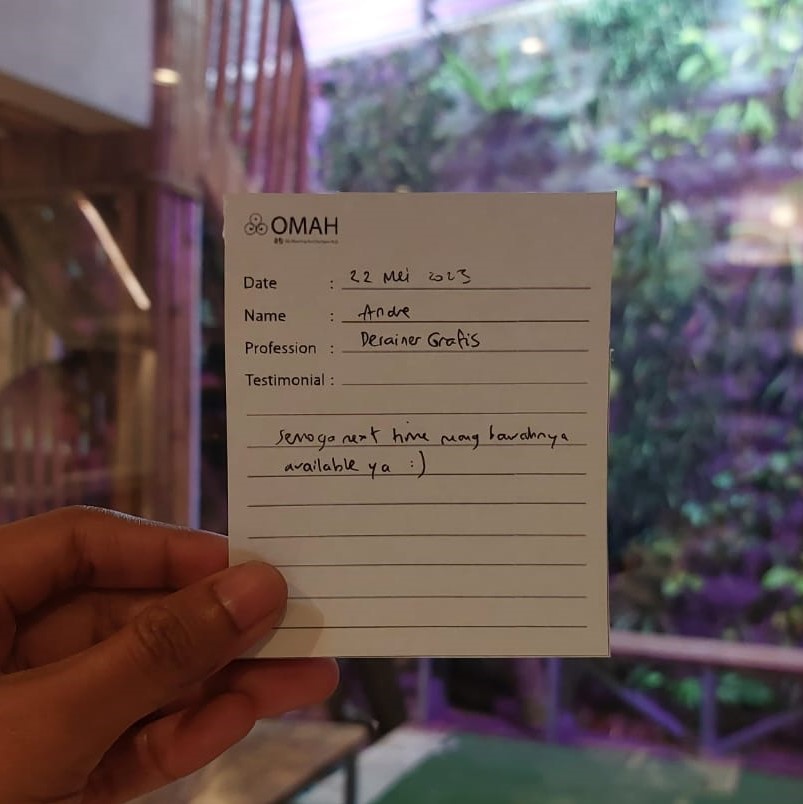 OMAH
Date : 22 Mei 2023
Name : Andre
Profession : Desainer Grafis
Testimonial :
Semoga next time ruang bawahnya
available ya :)